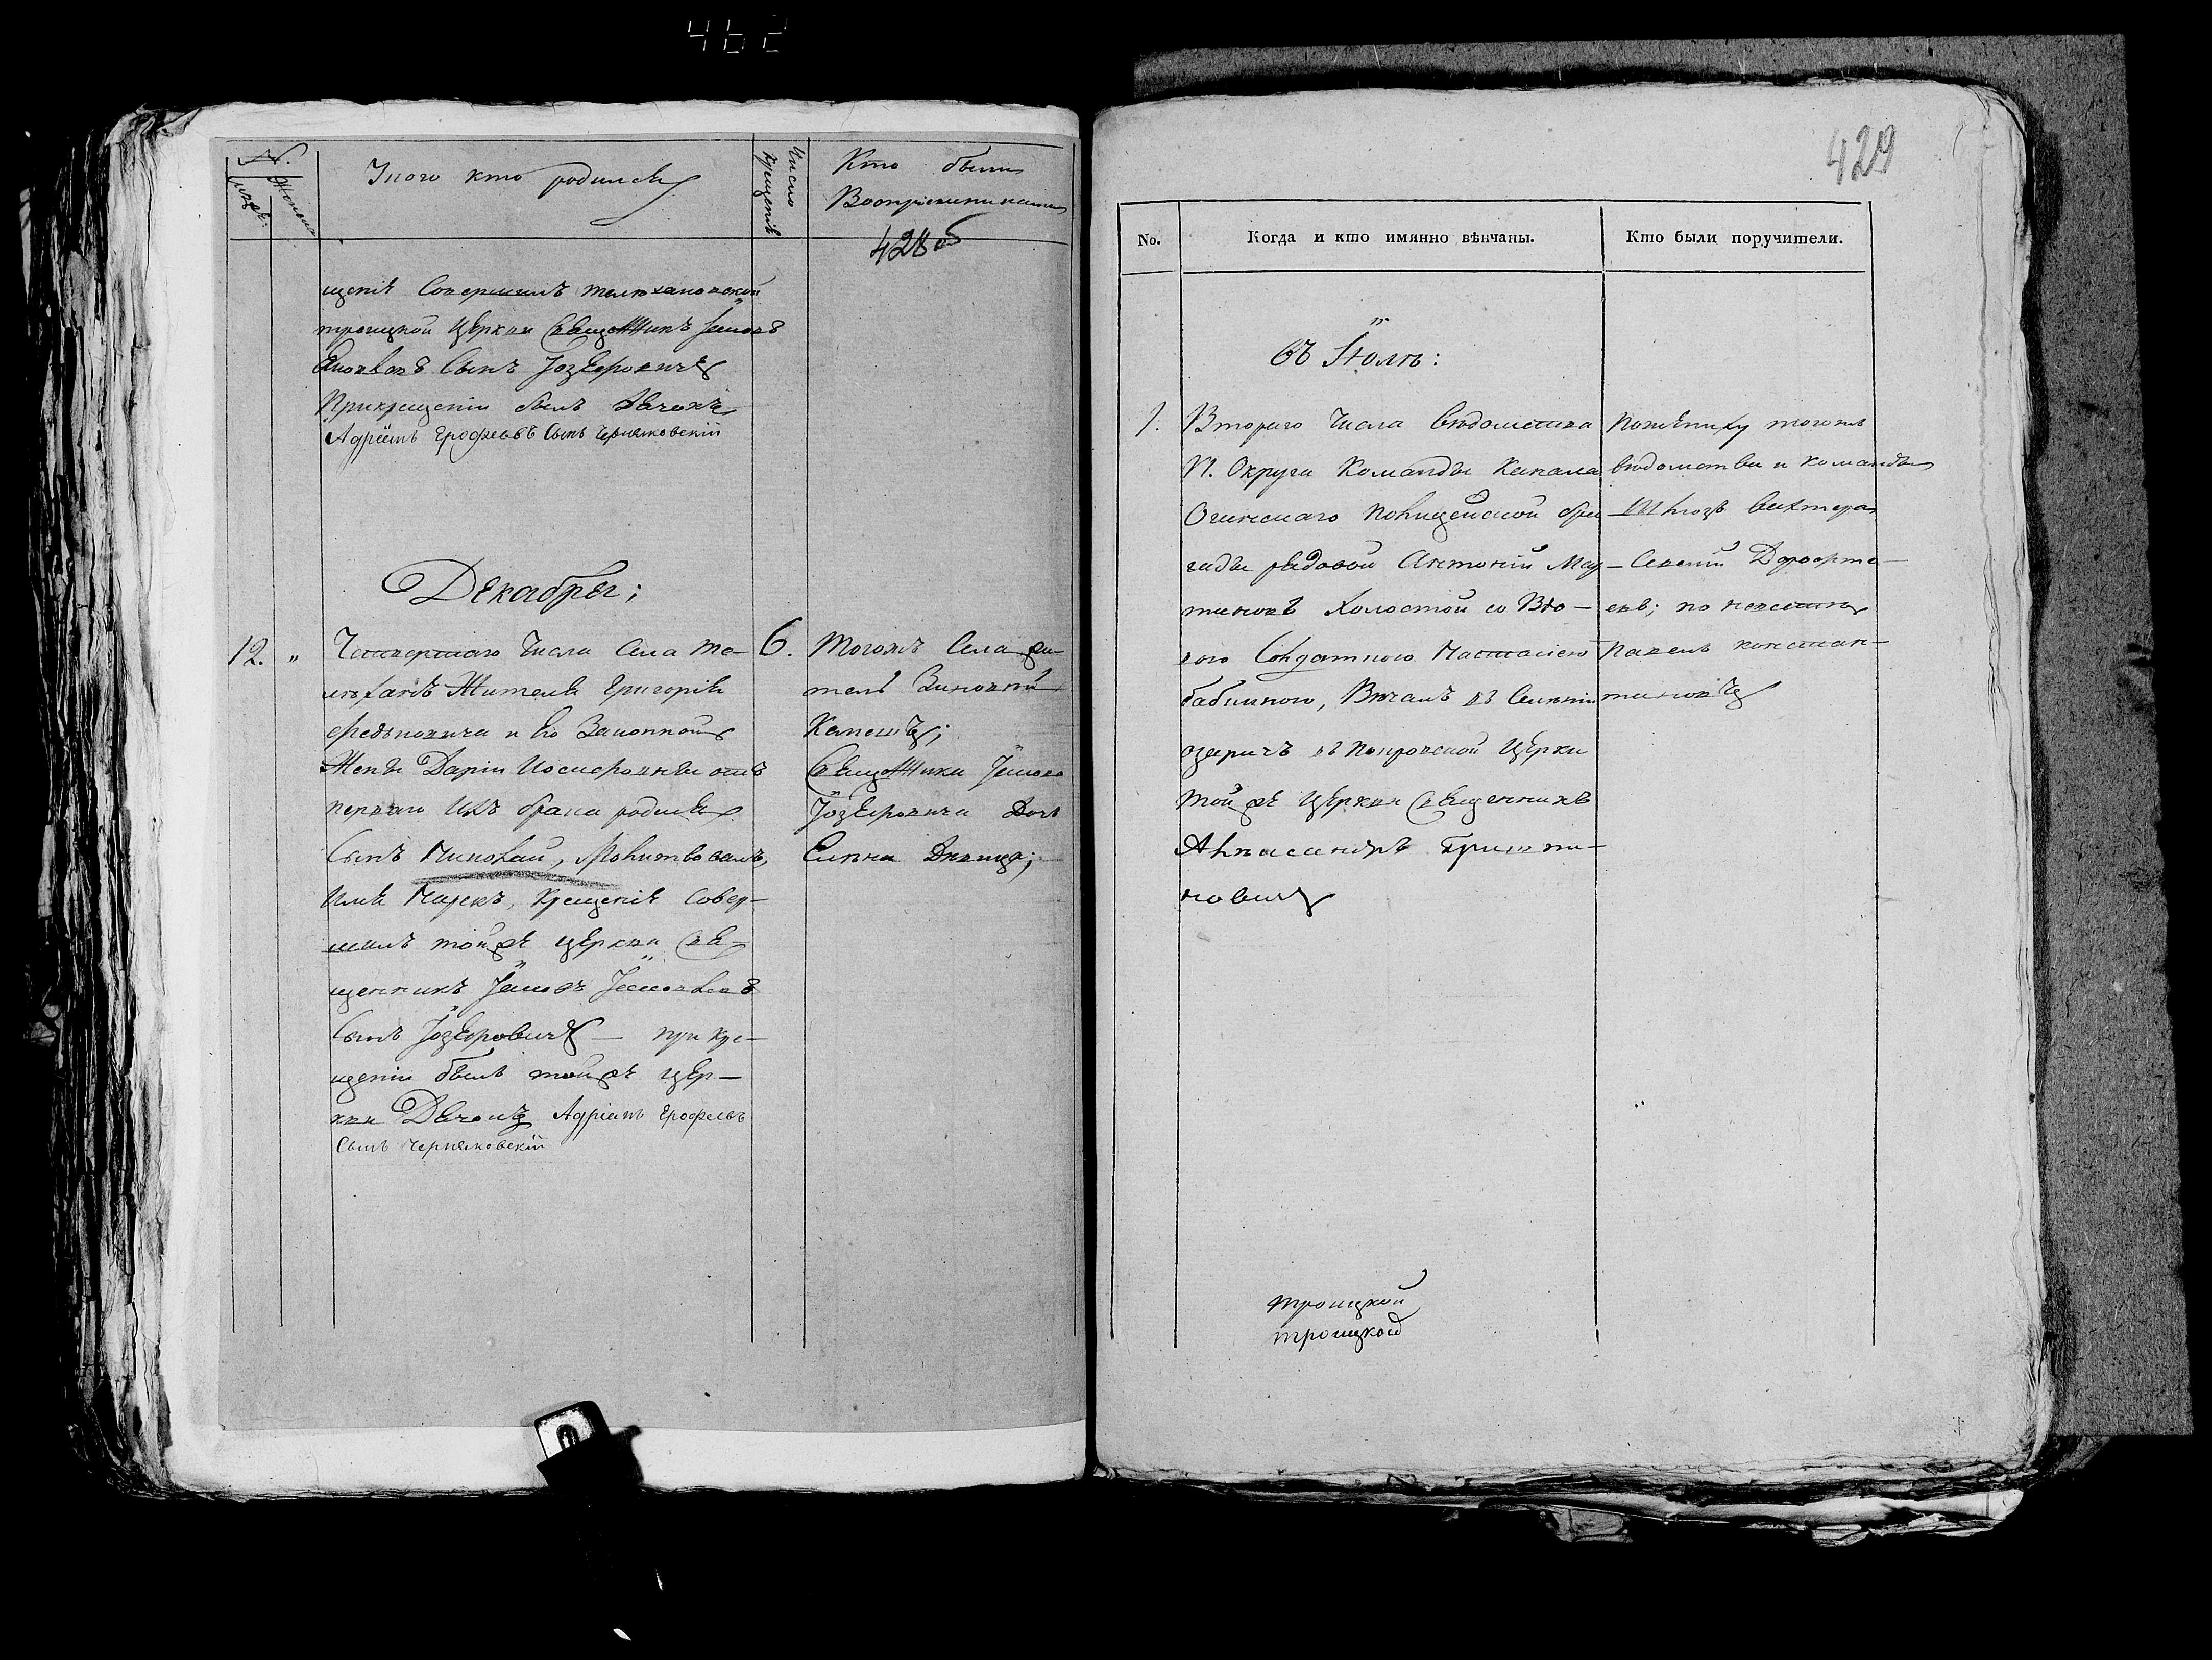 462
N.
муж:
Женск:
У кого кто родился
Число крещенія
Кто были
Воспріемниками
428 об
щеніе Совершилъ телеханской
троицкой Церкви Священникъ
Сынъ Іозефовичъ
При крещеніи былъ дьячокъ
Адріянъ Ерофеевъ Сынъ Черняковскій
Декабря;
12. " Четвертаго Числа Села Те-
леханъ Жителя Григорія
Федьковича и Его Законной
Жены Даріи Иосифовны отъ
перваго ихъ брака родился
Сынъ Николай, Молитвовалъ,
имя Нарекъ, Крещеніе Совер-
шилъ той же церкви Свя-
щенникъ
Сынъ Іозефовичъ — при кре-
щеніи былъ той же Цер-
кви Дьячокъ Адріянъ Ерофеевъ
Сынъ Черняковскій
6. Тогожъ Села жи-
тель
Священника
Іозефовича Дочь
Елена Девица;
429
No.
Когда и кто имянно вѣнчаны.
Кто были поручители.
въ Іюлѣ:
1. Втораго Числа Вѣдомства
П. Округа Команды Канала
Огинскаго Полицейской бри-
гады рядовой Антоній Мар-
тиновъ Холостой со Вдо-
вого Солдаткою Настасіею
Вѣнчалъ въ Селеніи
въ Покровской Церкви
Той же Церкви Священникъ
Александръ
новичъ
По жениху тогожъ
вѣдомства и команды
Шлюзъ вахтеръ
Дорофѣ-
евъ; по невѣстѣ
Павелъ констан-
тиновичъ
троицкой
троицкой